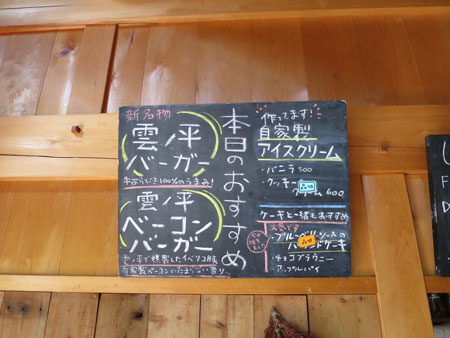 本日のおすすめ
新名物
雲ノ平
バーガー
100%のうまみ!
雲ノ平
ベーコン
バーガー
自家製ベーコンがたまらない香り
作ってます!
自家製
アイスクリーム
・バニラ 500
・クッキー
クリーム 600
ケーキと一緒もおすすめ
人気です
・ブルーベリーソースの
パウンドケーキ
・チョコブラウニー
・アップルパイ